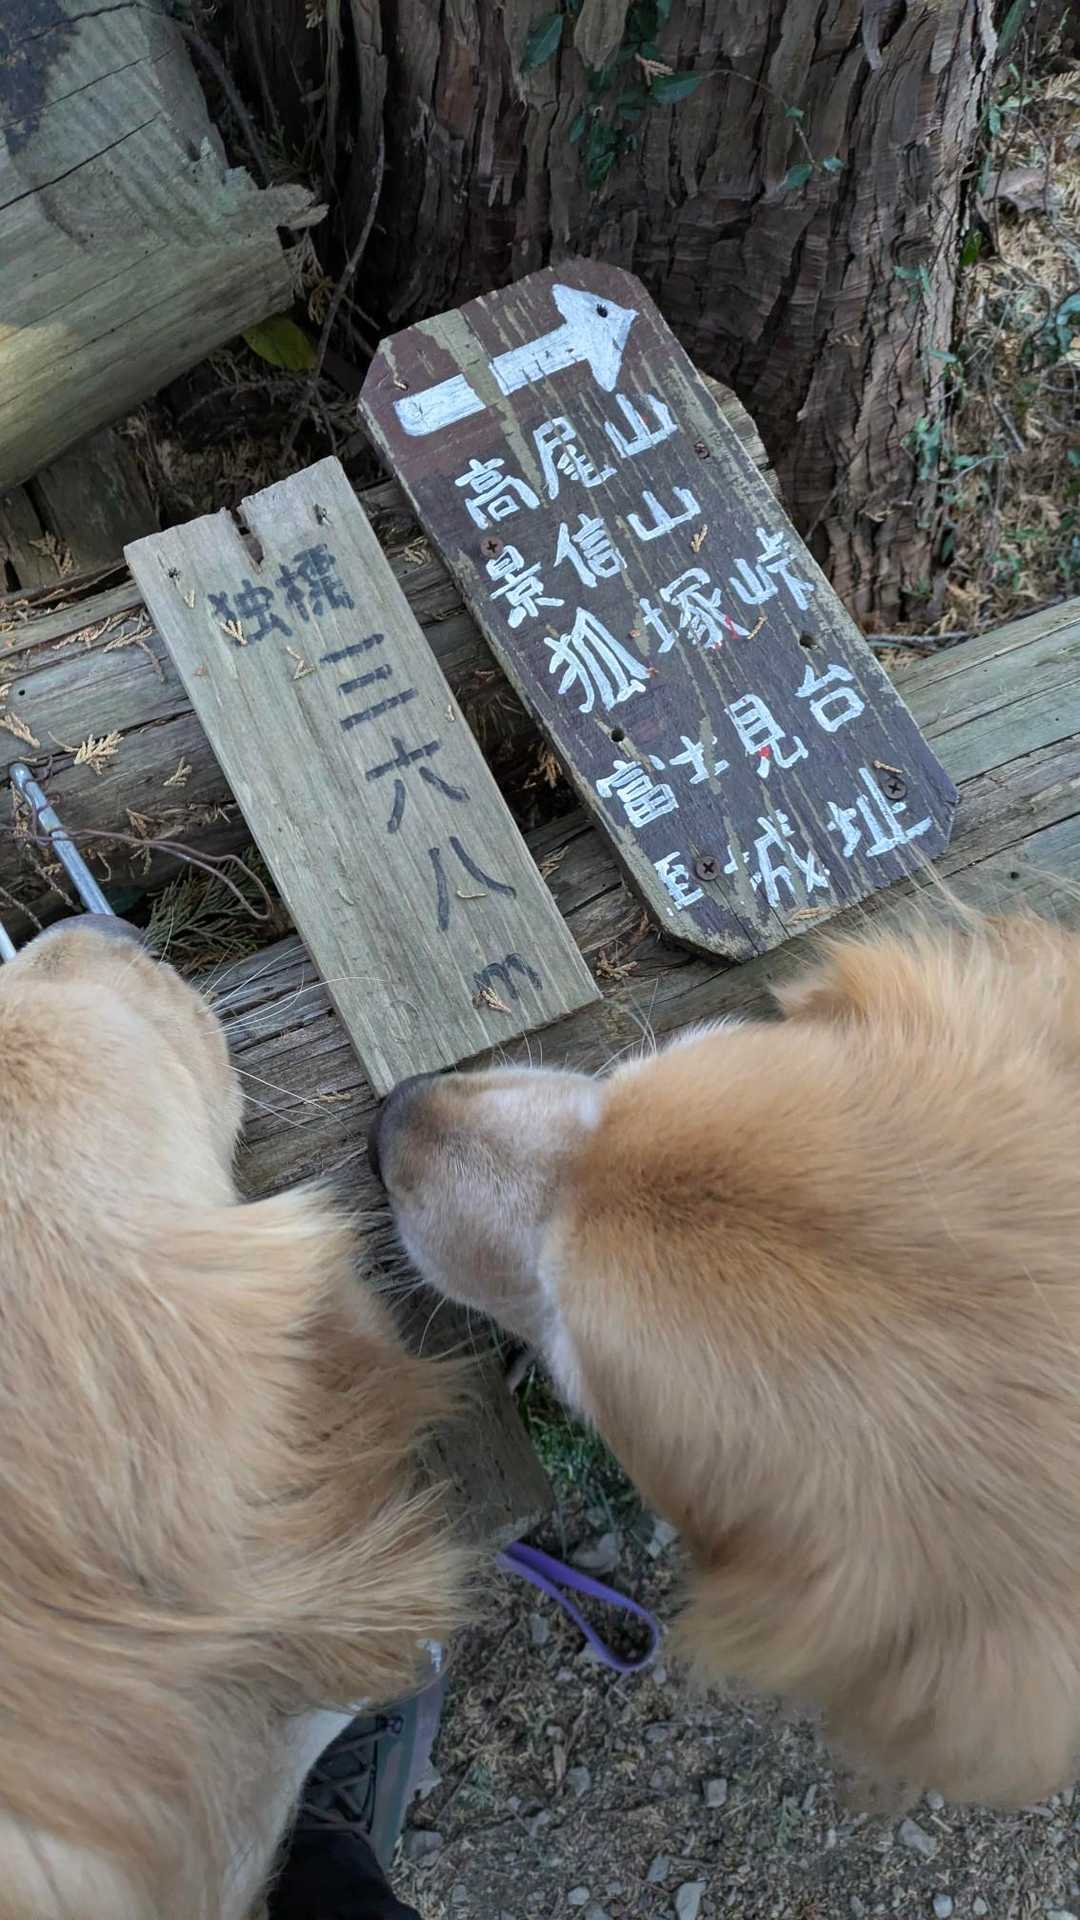 高尾山
景信山
狐塚峠
富士見台
城址
独標
三六八m